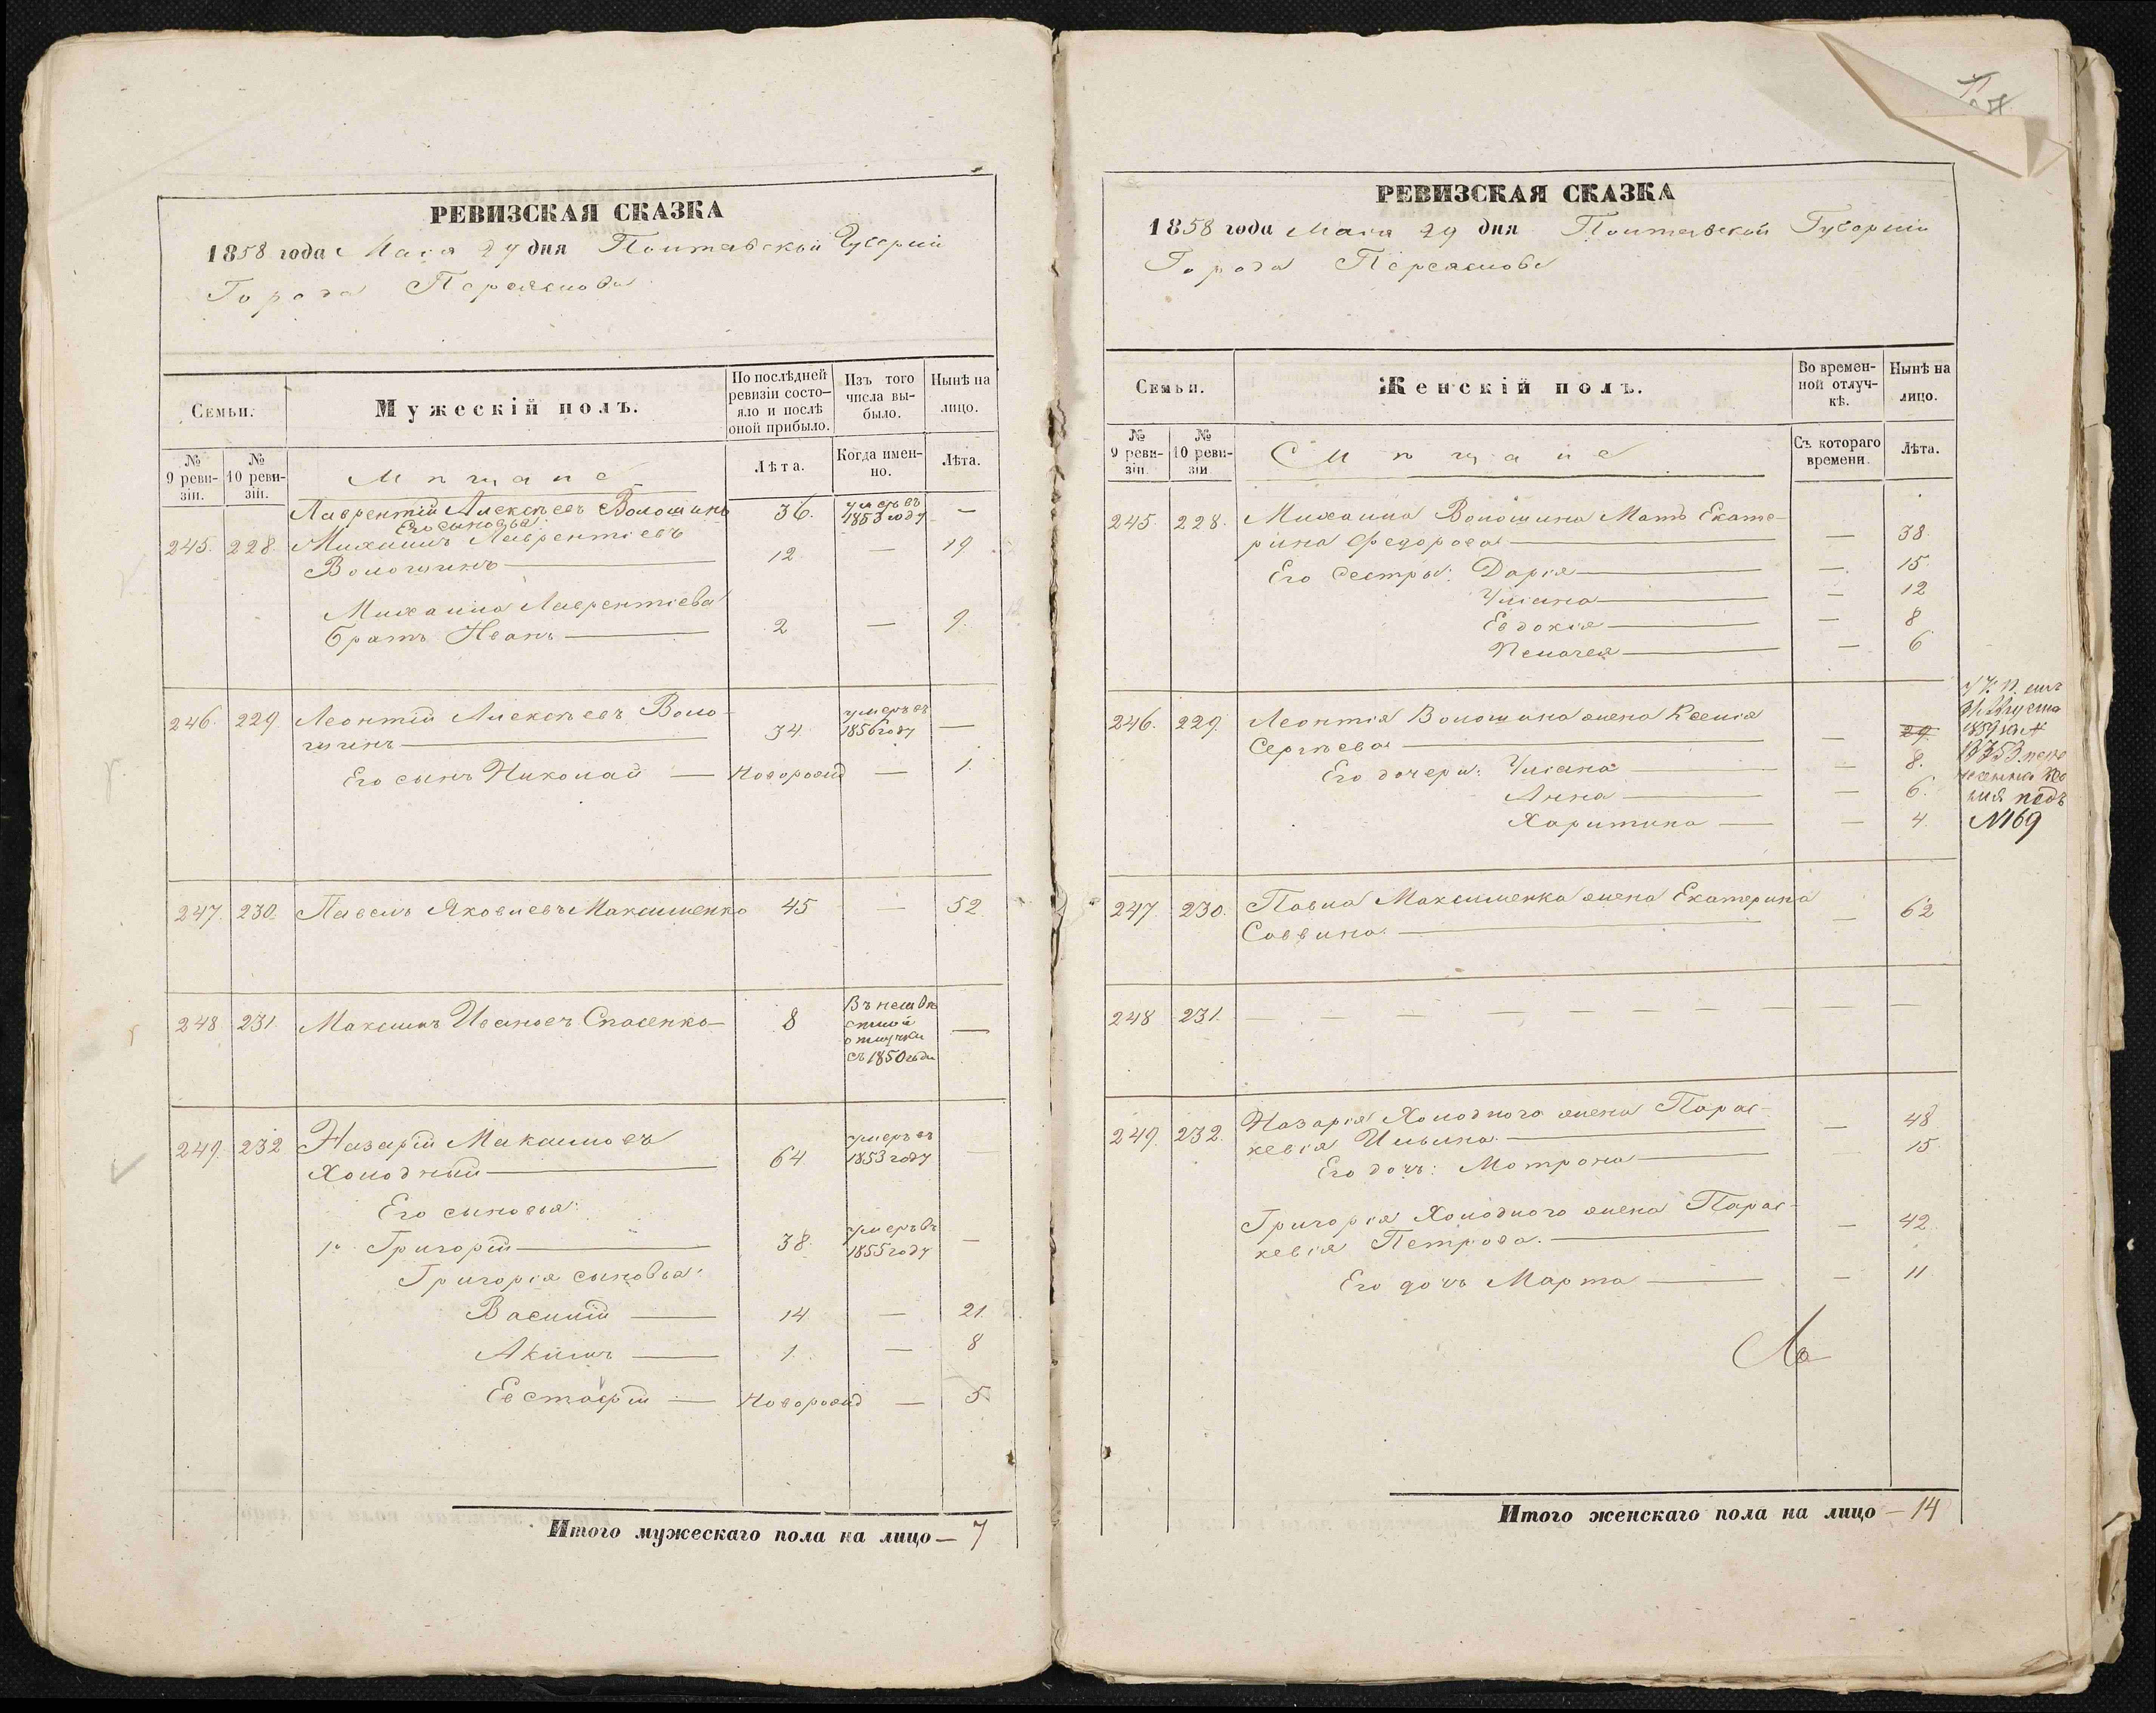 РЕВИЗСКАЯ СКАЗКА
1858 года Маія 29 дня Полтавской Губерніи
Города Переяслова
Семьи.
Мужескій полъ.
По послѣдней ревизіи состояло и послѣ оной прибыло.
Изъ того числа выбыло.
Нынѣ на лицо.
№ 9 ревизіи.
№ 10 ревизіи.
Мѣщане
Лѣта.
Когда именно.
Лѣта.
Лаврентій Алексѣевъ Волошинъ 36. умеръ въ 1853 году —
Его сыновья:
245. 228. Михаилъ Лаврентіевъ
Волошинъ — 12 — 19
Михаила Лаврентіева
братъ Иванъ — 2 — 9.
246. 229. Леонтій Алексѣевъ Воло-
шинъ — 34 умеръ въ 1856 году —
Его сынъ Николай — Новорожд — 1.
247. 230. Павелъ Яковлевъ Максименко 45 — 52
248 231. Максимъ Ивановъ Спасенко — 8 Въ неизвѣстной отлучки съ 1850 года —
249. 232 Назарій Максимовъ
Холодный — 64 умеръ въ 1853 году —
Его сыновья:
1й Григорій — 38. умеръ въ 1855 году —
Григорія сыновья:
Василій — 14 — 21.
Акимъ — 1. — 8
Евстафій — Новорожд — 5
Итого мужескаго пола на лицо — 7
РЕВИЗСКАЯ СКАЗКА
1858 года Маія 29 дня Полтавской Губерніи
Города Переяслова
Семьи.
Женскій полъ.
Во временной отлучкѣ.
Нынѣ на лицо.
№ 9 ревизіи.
№ 10 ревизіи
Мѣщане
Съ котораго времени.
Лѣта.
245. 228. Михаила Волошина Мать Екате-
рина Федорова — — 38.
Его Сестры: Дарія — — 15.
Уліана — — 12
Евдокія — — 8
Пелагея — — 6
246. 229. Леонтія Волошина жена Ксенія
Сергѣева — — 29.
Его дочери: Уліана — — 8.
Анна — — 6.
Харитина — — 4.
1859
подъ
№169
247. 230. Павла Максименка жена Екатерина
Саввина. — — 62
248 231. — — — — — — — —
249. 232. Назарія Холоднаго жена Парас-
кевія Ильина. — — 48
Его дочь: Мотрона — 15.
Григорія Холоднаго жена Парас-
кевія Петрова. — — 42.
Его дочь Марта — — 11
Итого женскаго пола на лицо — 14